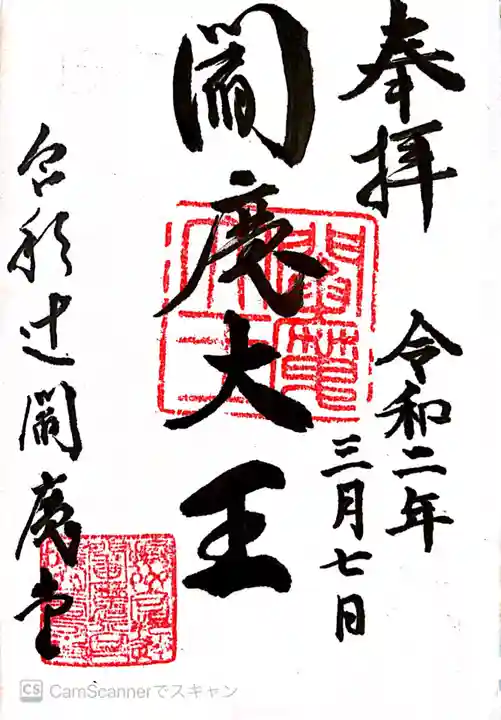 奉拝
令和二年
三月七日
閻魔大王
合形辻閻魔堂
閻魔
大王
CS CamScannerでスキャン